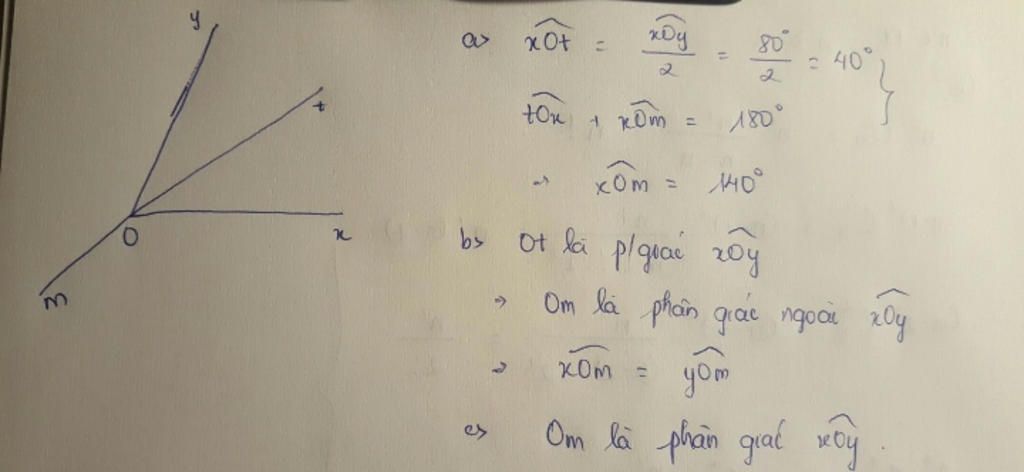 y
t
O
x
m
a> xOt = xOy/2 = 80°/2 = 40° }
tOx + xOm = 180°
→ xOm = 140°
b> Ot là p/giác xOy
→ Om là phân giác ngoài xOy
→ xOm = yOm
c> Om là phân giác xOy.